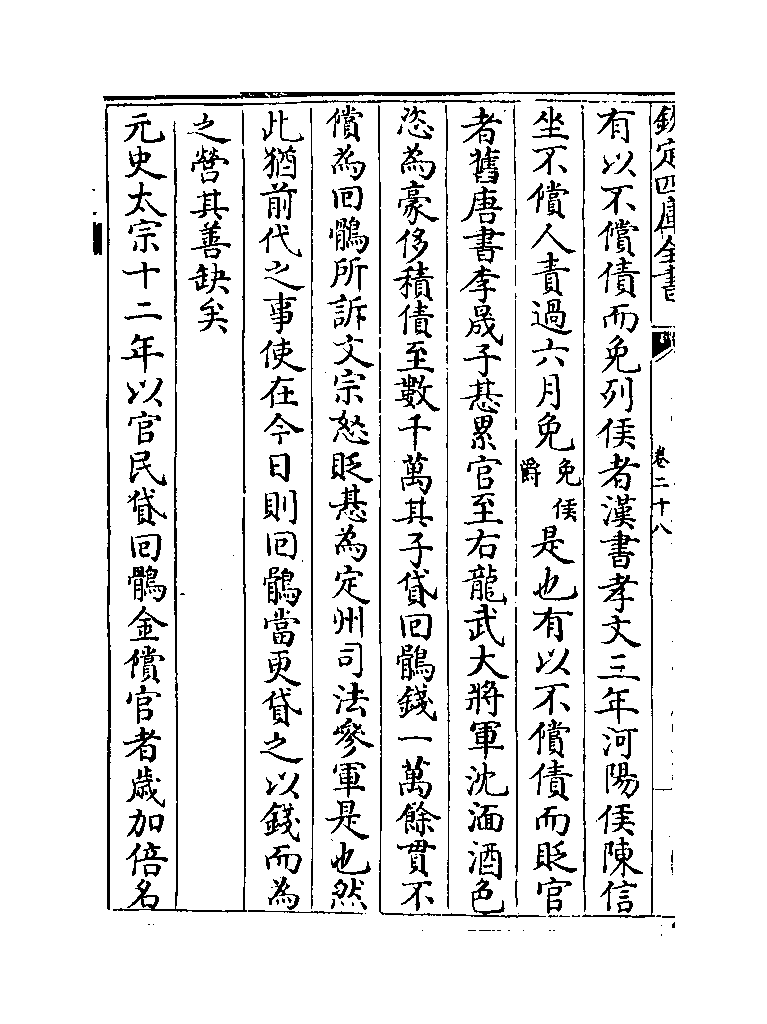 欽定四庫全書
卷二十八
有以不償債而免列侯者漢書孝文三年河陽侯陳信
坐不償人責過六月免免侯爵是也有以不償債而貶官
者舊唐書李晟子惎累官至右龍武大將軍沈湎酒色
恣為豪侈積債至數千萬其子貸回鶻錢一萬餘貫不
償為回鶻所訴文宗怒貶惎為定州司法參軍是也然
此猶前代之事使在今日則回鶻當更貸之以錢而為
之營其善缺矣
元史太宗十二年以官民貸回鶻金償官者歲加倍名